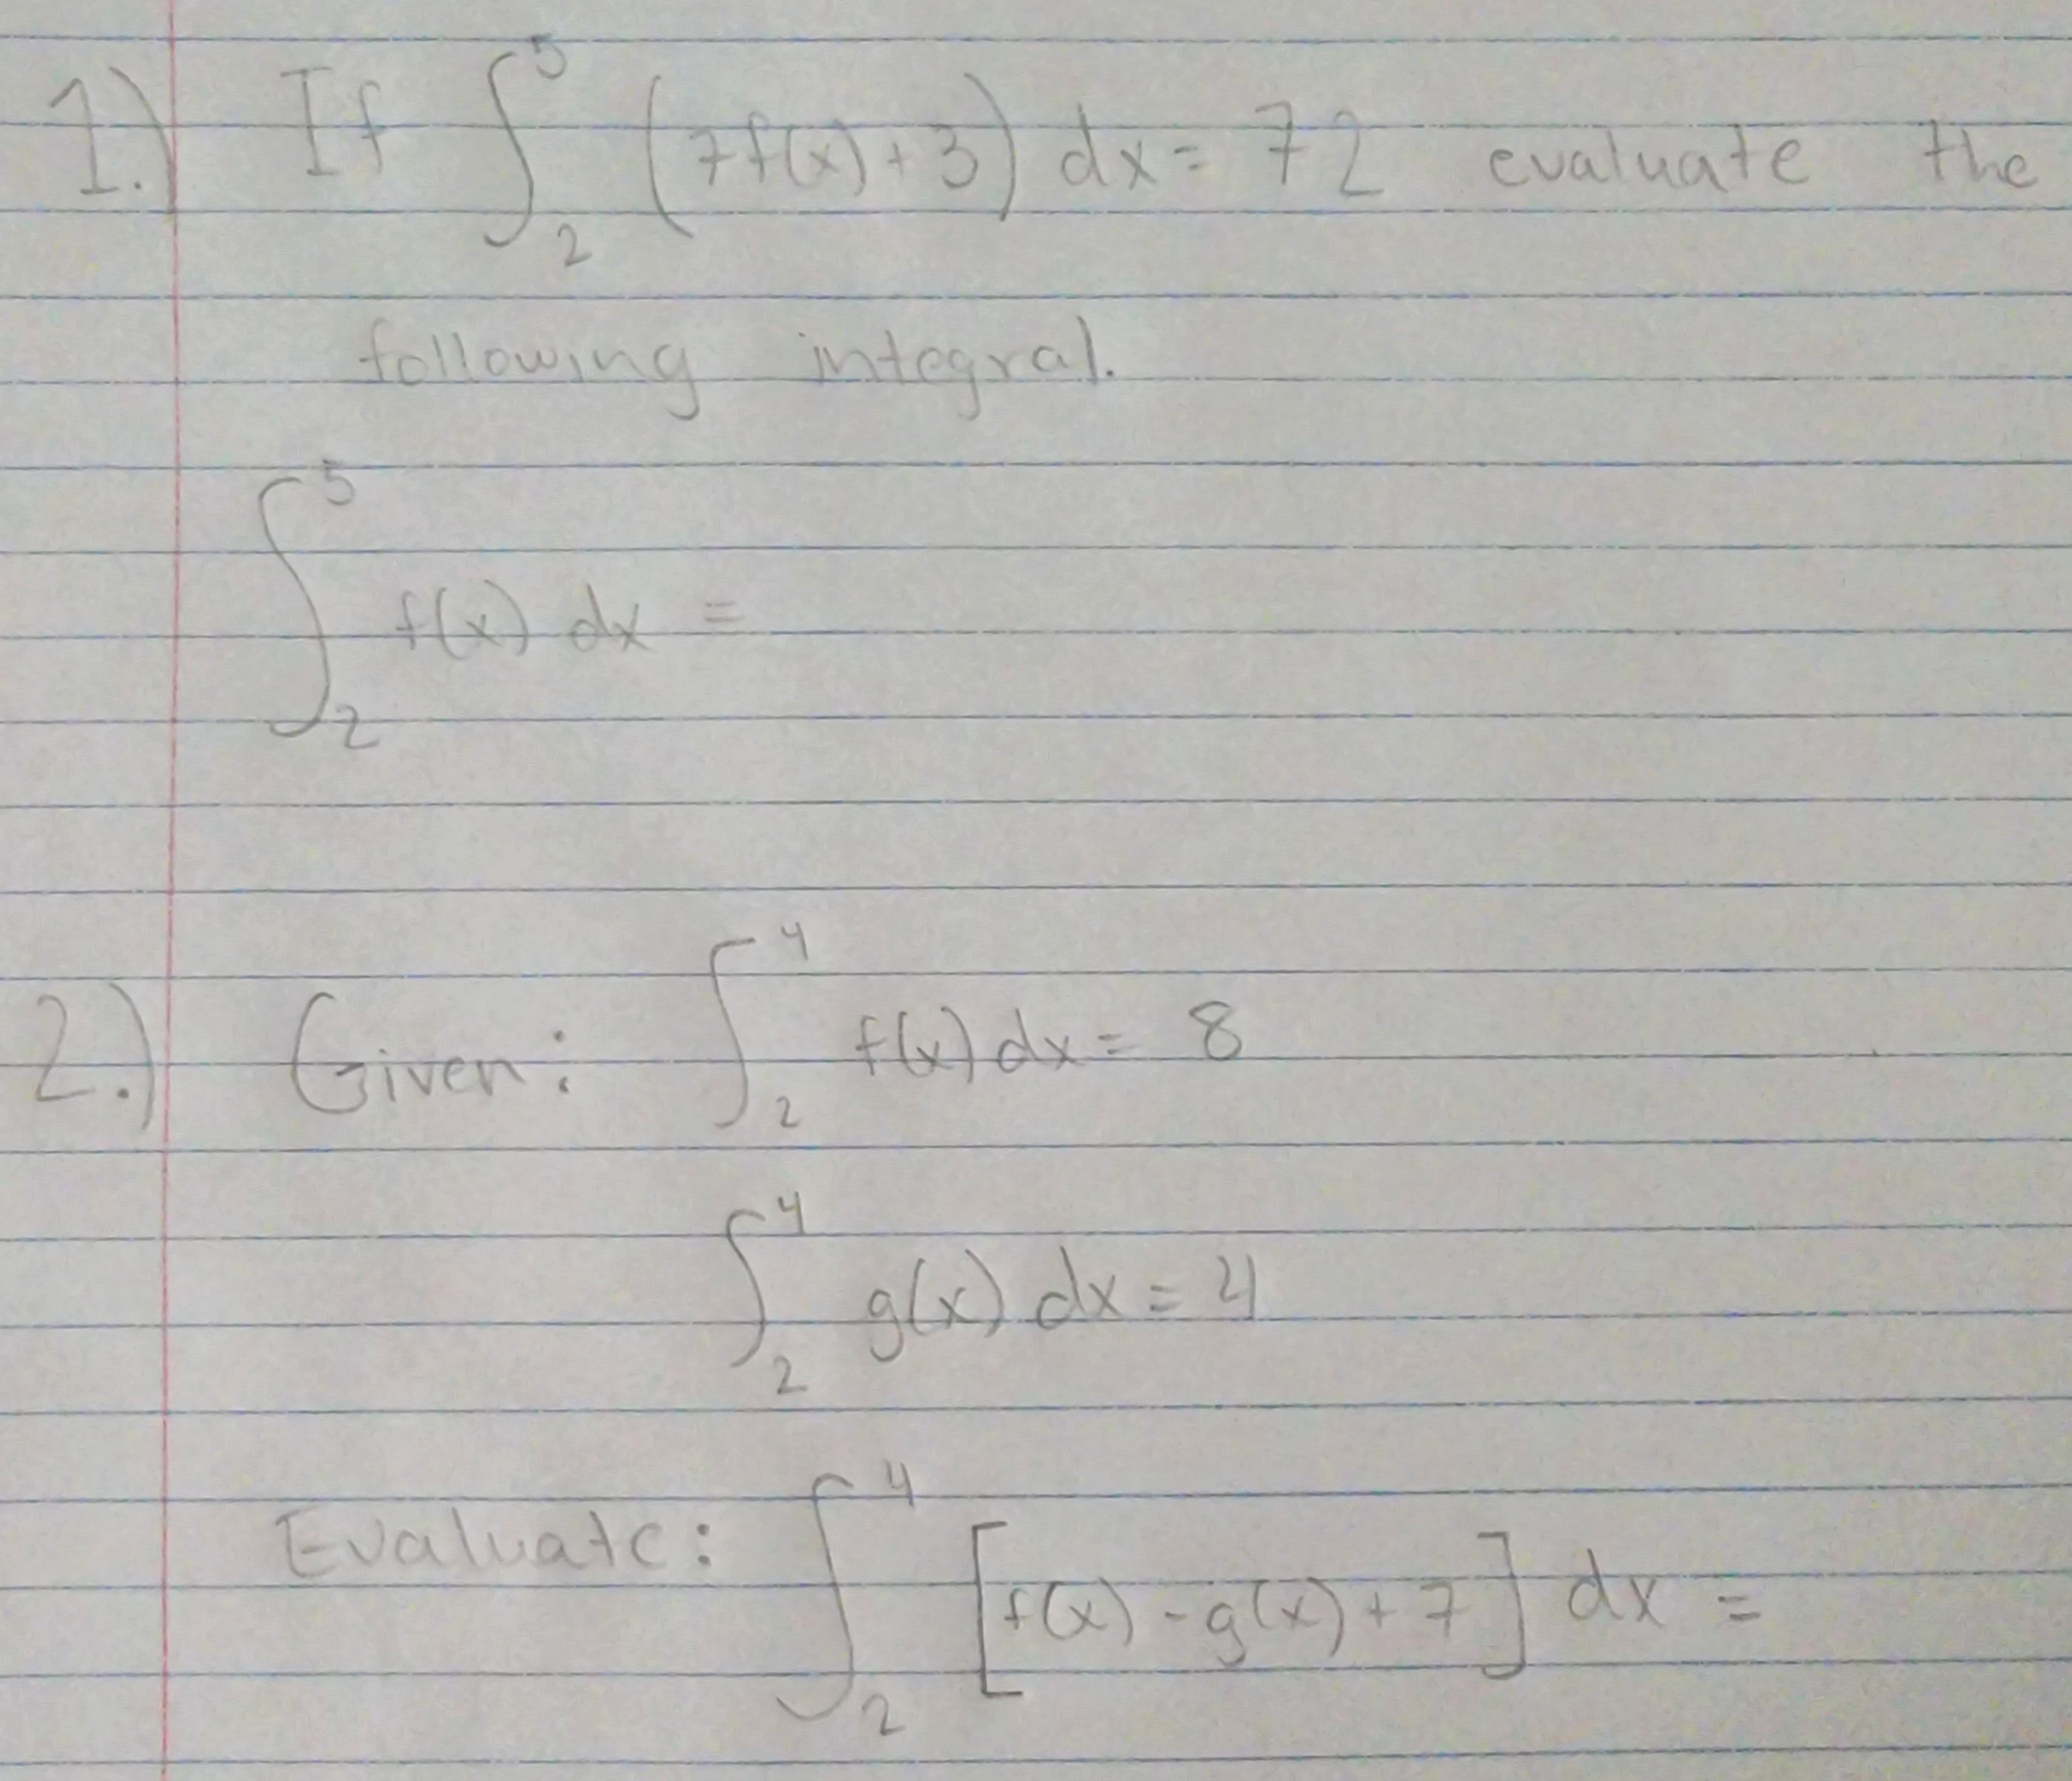 1.) If ∫₂⁵ (7f(x)+3) dx = 72 evaluate the
following integral.
∫₂⁵ f(x) dx =
2.) Given: ∫₂⁴ f(x) dx = 8
∫₂⁴ g(x) dx = 4
Evaluate: ∫₂⁴ [f(x) - g(x) + 7] dx =